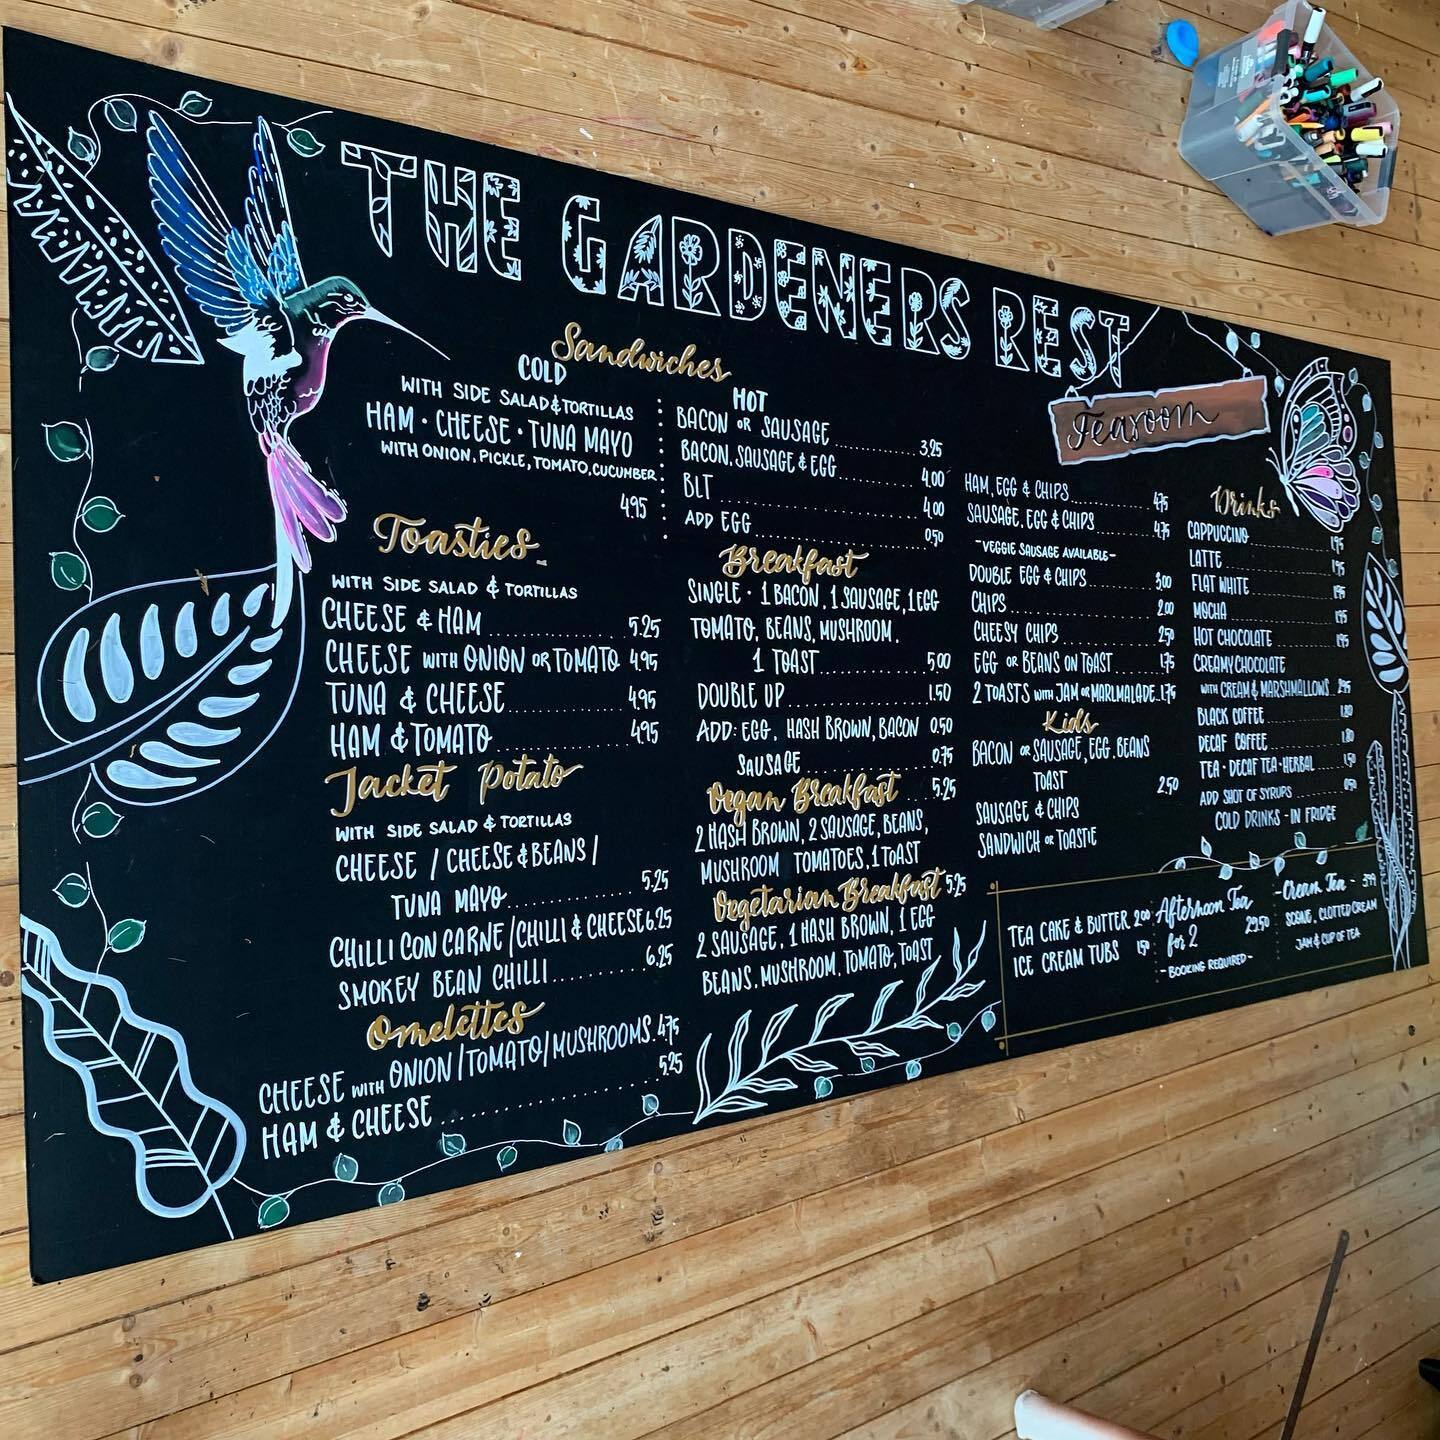 THE GARDENERS REST
Tearoom
Sandwiches
COLD
WITH SIDE SALAD & TORTILLAS
HAM · CHEESE · TUNA MAYO
WITH ONION, PICKLE, TOMATO, CUCUMBER
4.95
HOT
BACON OR SAUSAGE 3.25
BACON, SAUSAGE & EGG 4.00
BLT 4.00
ADD EGG 0.50
Toasties
WITH SIDE SALAD & TORTILLAS
CHEESE & HAM 5.25
CHEESE WITH ONION OR TOMATO 4.95
TUNA & CHEESE 4.95
HAM & TOMATO 4.95
Jacket Potato
WITH SIDE SALAD & TORTILLAS
CHEESE / CHEESE & BEANS /
TUNA MAYO 5.25
CHILLI CON CARNE / CHILLI & CHEESE 6.25
SMOKEY BEAN CHILLI 6.25
Omelettes
CHEESE WITH ONION / TOMATO / MUSHROOMS. 4.75
HAM & CHEESE 5.25
Breakfast
SINGLE · 1 BACON, 1 SAUSAGE, 1 EGG
TOMATO, BEANS, MUSHROOM,
1 TOAST 5.00
DOUBLE UP 1.50
ADD: EGG, HASH BROWN, BACON 0.50
SAUSAGE 0.75
Vegan Breakfast 5.25
2 HASH BROWN, 2 SAUSAGE, BEANS,
MUSHROOM TOMATOES, 1 TOAST
Vegetarian Breakfast 5.25
2 SAUSAGE, 1 HASH BROWN, 1 EGG
BEANS, MUSHROOM, TOMATO, TOAST
HAM, EGG & CHIPS 4.75
SAUSAGE, EGG & CHIPS 4.75
- VEGGIE SAUSAGE AVAILABLE -
DOUBLE EGG & CHIPS 3.00
CHIPS 2.00
CHEESY CHIPS 2.50
EGG OR BEANS ON TOAST 1.75
2 TOASTS WITH JAM OR MARLMALADE 1.75
Kids
BACON OR SAUSAGE, EGG, BEANS
TOAST 2.50
SAUSAGE & CHIPS
SANDWICH OR TOASTIE
Drinks
CAPPUCCINO 1.95
LATTE 1.95
FLAT WHITE 1.95
MOCHA 1.95
HOT CHOCOLATE 1.95
CREAMY CHOCOLATE
WITH CREAM & MARSHMALLOWS 2.95
BLACK COFFEE 1.80
DECAF COFFEE 1.80
TEA · DECAF TEA · HERBAL 1.50
ADD SHOT OF SYRUPS 0.50
COLD DRINKS - IN FRIDGE
TEA CAKE & BUTTER 2.00
ICE CREAM TUBS 1.50
Afternoon Tea
for 2 29.50
- BOOKING REQUIRED -
- Cream Tea - 3.99
SCONE, CLOTTED CREAM
JAM & CUP OF TEA